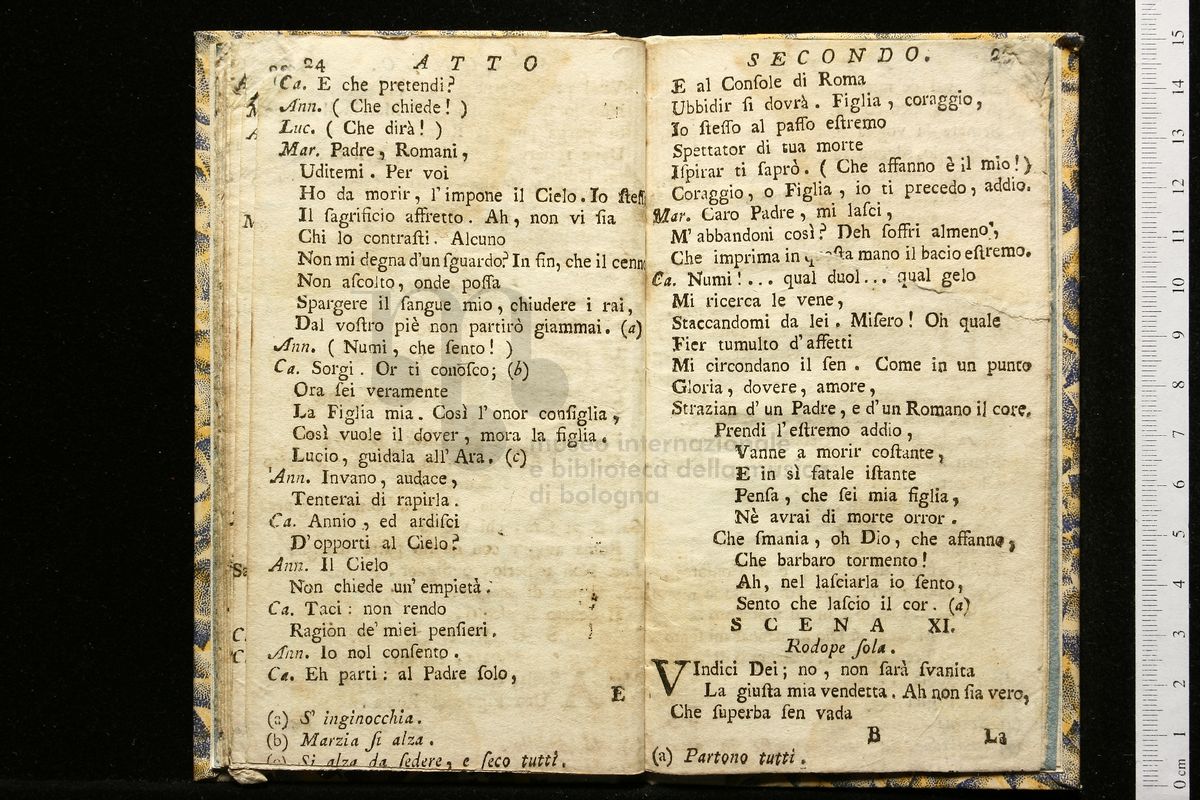 24 ATTO
Ca. E che pretendi?
Ann. ( Che chiede! )
Luc. ( Che dirà! )
Mar. Padre, Romani,
Uditemi. Per voi
Ho da morir, l'impone il Cielo. Io ſteſſ
Il ſagrificio affretto. Ah, non vi ſia
Chi lo contraſti. Alcuno
Non mi degna d'un ſguardo? In fin, che il cenn
Non aſcolto, onde poſſa
Spargere il ſangue mio, chiudere i rai,
Dal voſtro piè non partirò giammai. (a)
Ann. ( Numi, che ſento! )
Ca. Sorgi. Or ti conoſco; (b)
Ora ſei veramente
La Figlia mia. Così l'onor conſiglia,
Così vuole il dover, mora la figlia.
Lucio, guidala all'Ara. (c)
Ann. Invano, audace,
Tenterai di rapirla.
Ca. Annio, ed ardiſci
D'opporti al Cielo?
Ann. Il Cielo
Non chiede un'empietà.
Ca. Taci: non rendo
Ragion de' miei penſieri.
Ann. Io nol conſento.
Ca. Eh parti: al Padre ſolo,
E
(a) S' inginocchia.
(b) Marzia ſi alza.
(c) Si alza da ſedere, e ſeco tutti.
SECONDO.
E al Conſole di Roma
Ubbidir ſi dovrà. Figlia, coraggio,
Io ſteſſo al paſſo eſtremo
Spettator di tua morte
Iſpirar ti ſaprò. ( Che affanno è il mio! )
Coraggio, o Figlia, io ti precedo, addio.
Mar. Caro Padre, mi laſci,
M'abbandoni così? Deh ſoffri almeno,
Che imprima in queſta mano il bacio eſtremo.
Ca. Numi!... qual duol... qual gelo
Mi ricerca le vene,
Staccandomi da lei. Miſero! Oh quale
Fier tumulto d'affetti
Mi circondano il ſen. Come in un punto
Gloria, dovere, amore,
Strazian d'un Padre, e d'un Romano il core.
Prendi l'eſtremo addio,
Vanne a morir coſtante,
E in sì fatale iſtante
Penſa, che ſei mia figlia,
Nè avrai di morte orror.
Che ſmania, oh Dio, che affanno,
Che barbaro tormento!
Ah, nel laſciarla io ſento,
Sento che laſcio il cor. (a)
SCENA XI.
Rodope ſola.
VIndici Dei; no, non ſarà ſvanita
La giuſta mia vendetta. Ah non ſia vero,
Che ſuperba ſen vada
B La
(a) Partono tutti.
museo internazionale
e biblioteca della musica
di bologna